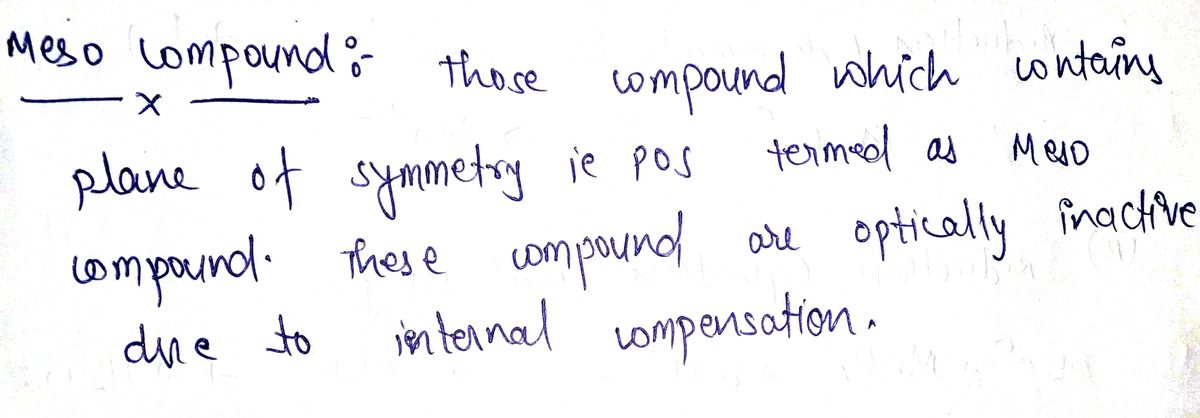 Meso compound :- those compound which contains
x
plane of symmetry ie POS termed as Meso
compound. These compound are optically inactive
due to internal compensation.